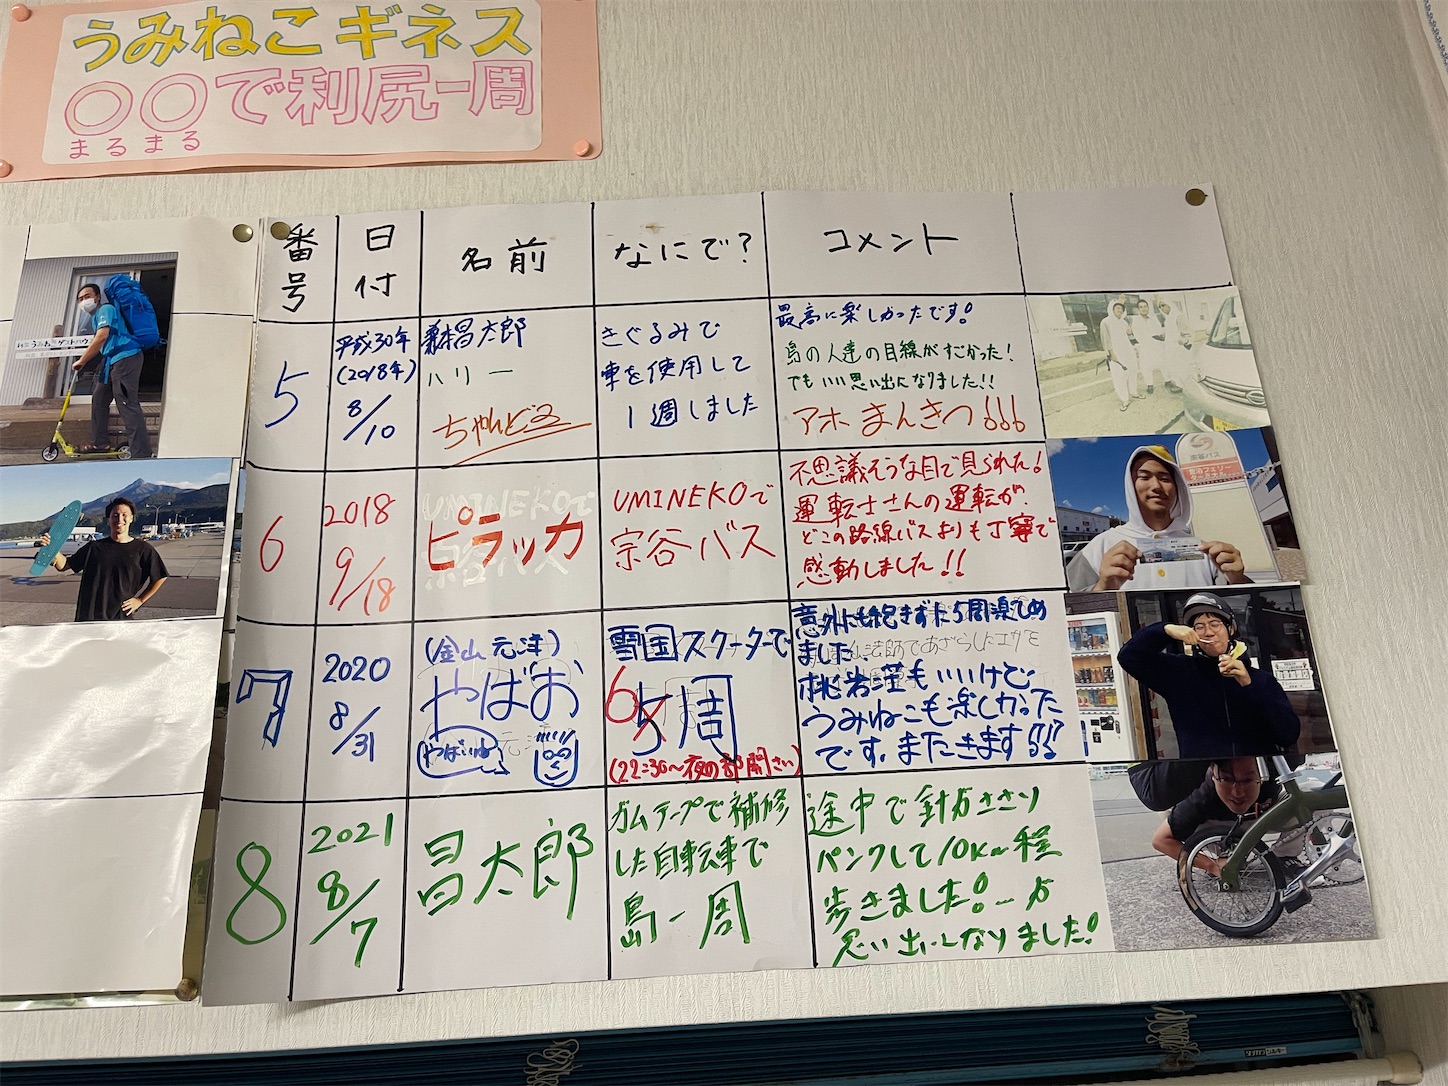 うみねこギネス
〇〇で利尻一周
まるまる
番号
日付
名前
なにで?
コメント
5
平成30年
(2018年)
8/10
昌太郎
ハリー
ちゃんどる
きぐるみで
車を使用して
1週しました
最高に楽しかったです!
島の人達の目線がすごかった!
でもいい思い出になりました!!
アホまんきつ!!!
6
2018
9/18
ピラッカ
UMINEKOで
宗谷バス
不思議そうな目で見られた!
運転士さんの運転が
どこの路線バスよりも丁寧で
感動しました!!
7
2020
8/31
(金山 元洋)
やばお
やばいね
雪国スクーターで
6
5周
(22:30~夜の部開さい)
意外にも飽きずに5周楽しめ
ました、
桃岩荘もいいけど
うみねこも楽しかった
です。またきます!!!
8
2021
8/7
昌太郎
ガムテープで補修
した自転車で
島一周
途中で針がささり
パンクして10km程
歩きました!
思い出になりました!
宗谷バス